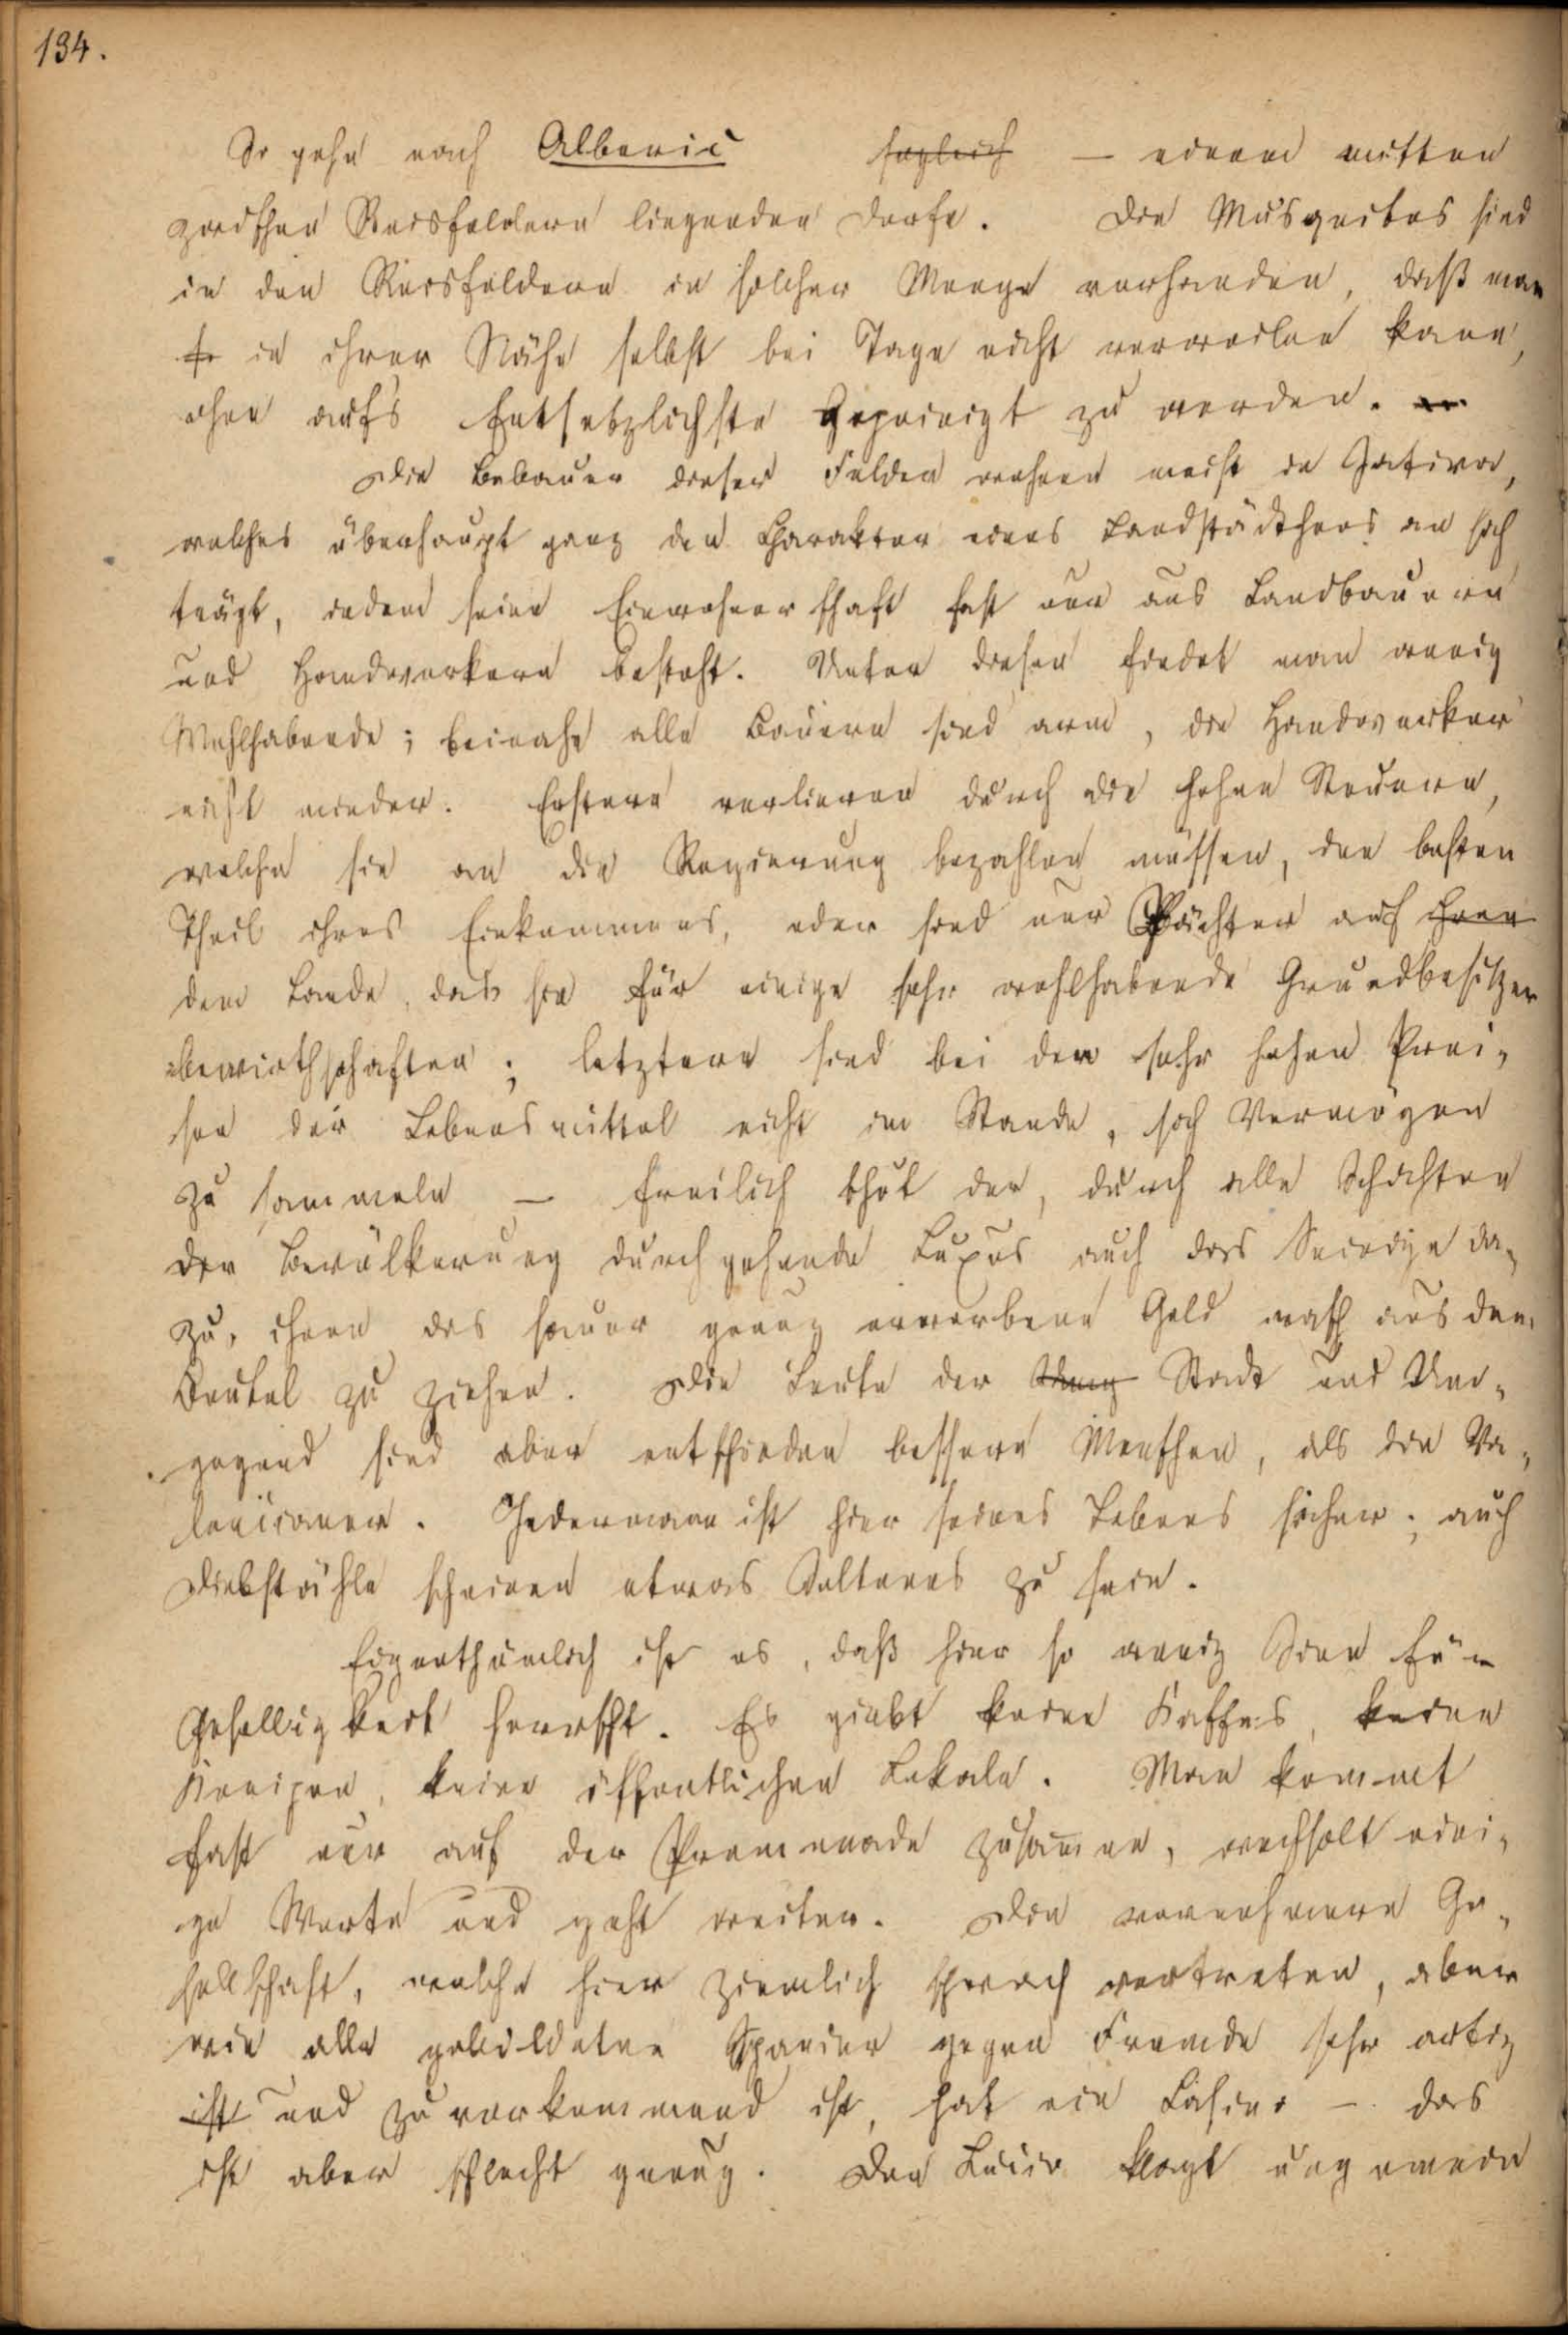 134.
So gehn nach Alberic täglich — einem mitten
zwischen Reisfeldern liegenden Dorfe. Die Musquitos sind
in den Reisfeldern in solcher Menge vorhanden, daß man
in ihrer Nähe selbst bei Tage nicht verweilen kann,
ohne auf's Entsetzlichste gepeinigt zu werden.
Die Bebauer dieser Felder wohnen meist in Jativa,
welches überhaupt ganz den Charakter eines Landstädtchens an sich
trägt, indem seine Einwohnerschaft fast nur aus Landbauern
und Handwerkern besteht. Unter diesen findet man wenig
Wohlhabende; beinahe alle Bauern sind arm, die Handwerker
nicht minder. Erstere verlieren durch die hohen Steuern,
welche sie an die Regierung bezahlen müssen, den besten
Theil ihres Einkommens, oder sind nur Pächter auf ihren
dem Lande, das sie für einige sehr wohlhabende Grundbesitzer
bewirthschaften; letztere sind bei den sehr hohen Prei-
sen der Lebensmittel nicht im Stande, sich Vermögen
zu sammeln — freilich thut der, durch alle Schichten
der Bevölkerung durchgehende Luxus auch das Seinige da-
zu, ihnen das sauer genug erworbene Geld rasch aus dem
Beutel zu ziehen. Die Leute der Stadt und Um-
gegend sind aber entschieden bessere Menschen, als die Va-
lencianer. Jedermann ist hier seines Lebens sicher; auch
Diebstähle scheinen etwas Seltenes zu sein.
Eigenthümlich ist es, daß hier so wenig Sinn für
Geselligkeit herrscht. Es giebt keine Kaffes, keine
Kneipen, keine öffentlichen Lokale. Man kommt
fast nur auf der Promenade zusammen, wechselt eini-
ge Worte und geht weiter. Die vornehmere Ge-
sellschaft, welche hier ziemlich schwach vertreten, aber
wie alle gebildeten Spanier gegen Fremde sehr artig
ist und zuvorkommend ist, hat ein Casino — das
ist aber schlecht genug. Der klagt ungemein